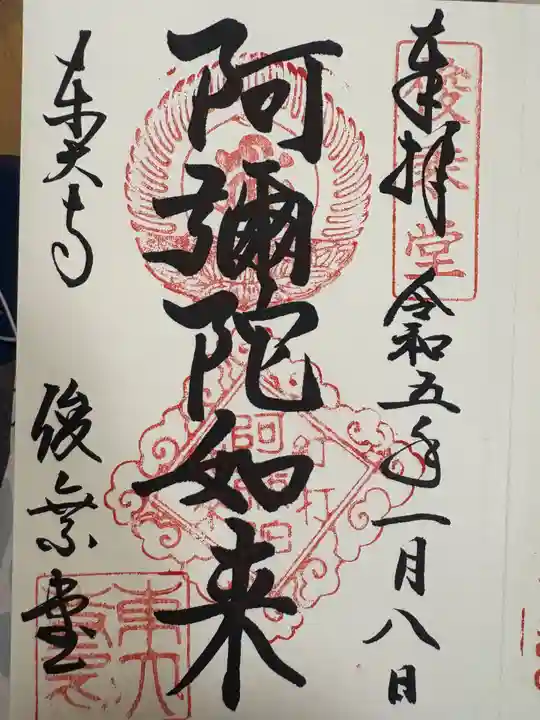 奉拝
令和五年一月八日
俊乗堂
阿彌陀如来
東大寺
俊乗堂